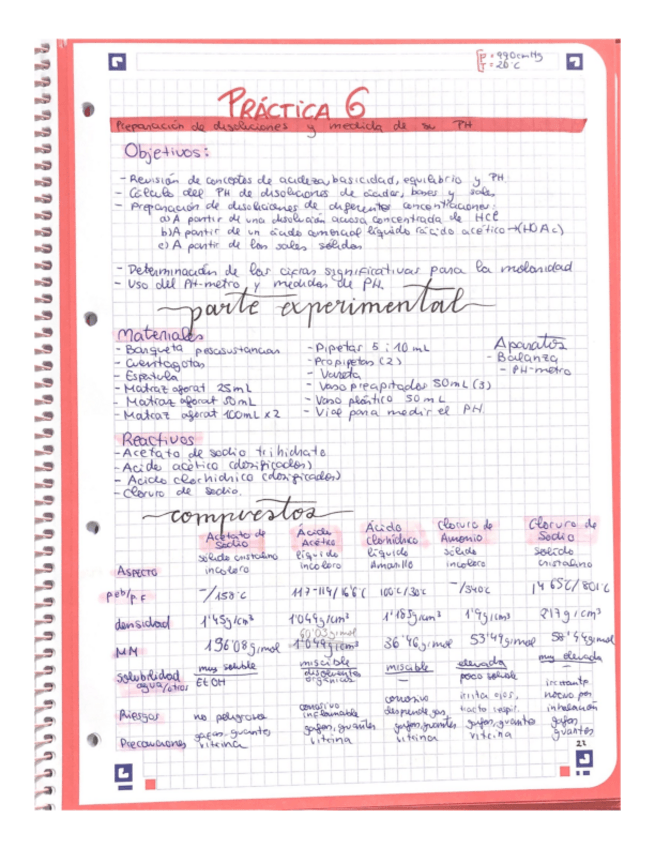 P = 990cmHg
T = 20°C
PRÁCTICA 6
Preparación de disoluciones y medida de su PH
Objetivos:
- Revisión de conceptos de acideza, basicidad, equilibrio y PH
- Cálculo del PH de disoluciones de ácidos, bases y sales
- Preparación de disoluciones de diferentes concentraciones:
a) A partir de una disolución acuosa concentrada de HCl
b) A partir de un ácido comercial líquido (ácido acético → (HOAc)
c) A partir de las sales sólidas
- Determinación de las cifras significativas para la molaridad
- Uso del PH-metro y medidas de PH.
parte experimental
Materiales
- Barqueta pesasustancias
- Cuentagotas
- Espátula
- Matraz aforat 25mL
- Matraz aforat 50mL
- Matraz aforat 100mL x 2
- Pipetas 5 i 10 mL
- Propipetas (2)
- Vareta
- Vaso precipitados 50mL (3)
- Vaso plástico 50mL
- Vial para medir el PH.
Aparatos
- Balanza
- PH-metro
Reactivos
- Acetato de sodio trihidrato
- Acido acético (dosificados)
- Acido clorhídrico (dosificados)
- Cloruro de sodio.
compuestos
Acetato de Sodio Ácido Acético Ácido Clorhídrico Cloruro de Amonio Cloruro de Sodio
ASPECTO sólido cristalino incoloro líquido incoloro líquido Amarillo sólido incoloro solido cristalino
peb/pF -/158°C 117-118/16'6 C 100°C/30°C -/340C 1465C/801°C
densidad 1'45g/cm³ 1'049g/cm³ 1'185g/cm³ 1'9g/cm³ 217g/cm³
MM 136'08g/mol 60'05g/mol 1'049g/cm³ 36'46g/mol 53'49g/mol 58'44g/mol
Solubilidad agua/otros muy soluble EtOH miscible disolventes orgánicos miscible — elevada poco soluble muy elevada —
Riesgos no peligrosa corrosivo inflamable corrosivo desprende gas irrita ojos, tracto respi. irritante nocivo por inhalación
Precauciones gafas, guantes vitrina gafas, guantes vitrina gafas, guantes vitrina gafas, guantes vitrina gafas guantes